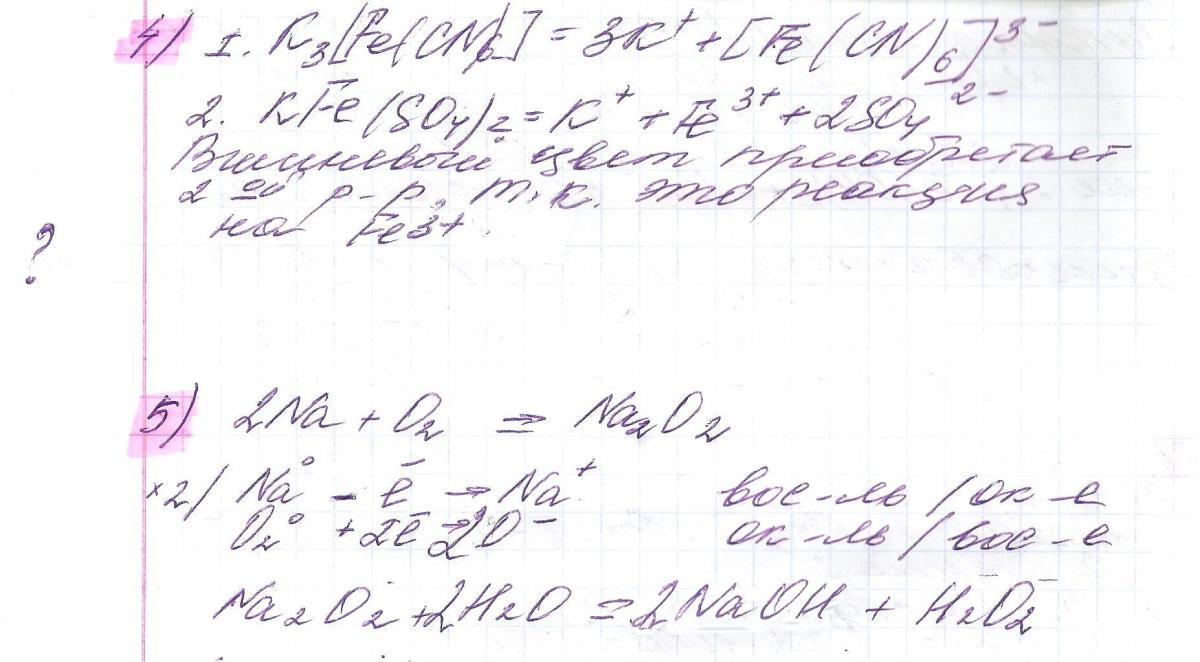 4) 1. K₃[Fe(CN)₆] = 3K⁺ + [Fe(CN)₆]³⁻
2. KFe(SO₄)₂ = K⁺ + Fe³⁺ + 2SO₄²⁻
Вишневый цвет приобретает
2 ой р-р, т.к. это реакция
на Fe3+
?
5) 2Na + O₂ = Na₂O₂
×2| Na⁰ - ē → Na⁺ вос-ль / ок-е
O₂⁰ + 2ē → 2O⁻ ок-ль / вос-е
Na₂O₂ + 2H₂O = 2NaOH + H₂O₂